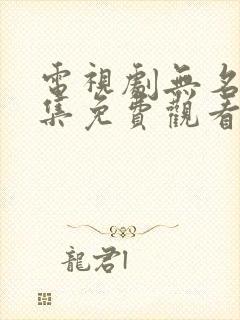 電視劇無名
集免費觀看
龍君l